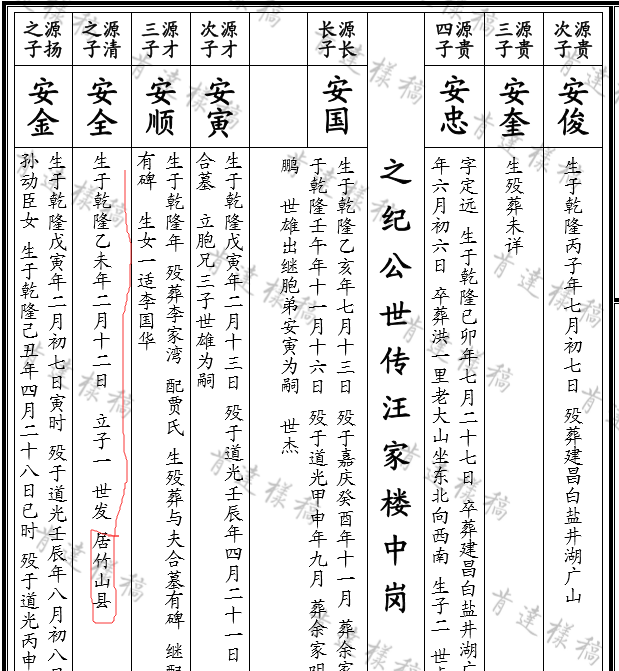 源贵
次子
安俊
生于乾隆丙子年七月初七日 殁葬建昌白盐井湖广山
源贵
三子
安奎
生殁葬未详
源贵
四子
安忠
字定远 生于乾隆己卯年七月二十七日 卒葬建昌白盐井湖广
年六月初六日 卒葬洪一里老大山坐东北向西南 生子二 世
之纪公世传汪家楼中岗
源长
长子
安国
生于乾隆乙亥年七月十三日 殁于嘉庆癸酉年十一月 葬余家
于乾隆壬午年十一月十六日 殁于道光甲申年九月 葬余家阴
鹏 世雄出继胞弟安寅为嗣 世杰
源才
次子
安寅
生于乾隆戊寅年二月十三日 殁于道光壬辰年四月二十一日
合墓 立胞兄三子世雄为嗣
源才
三子
安顺
生于乾隆年 殁葬李家湾 配贾氏 生殁葬与夫合墓有碑 继配
有碑 生女一适李国华
源清
之子
安全
生于乾隆乙未年二月十二日 立子一 世发 居竹山县
源扬
之子
安金
生于乾隆戊寅年二月初七日寅时 殁于道光壬辰年八月初八日
孙动臣女 生于乾隆己丑年四月二十八日巳时 殁于道光丙申
肯達樣稿